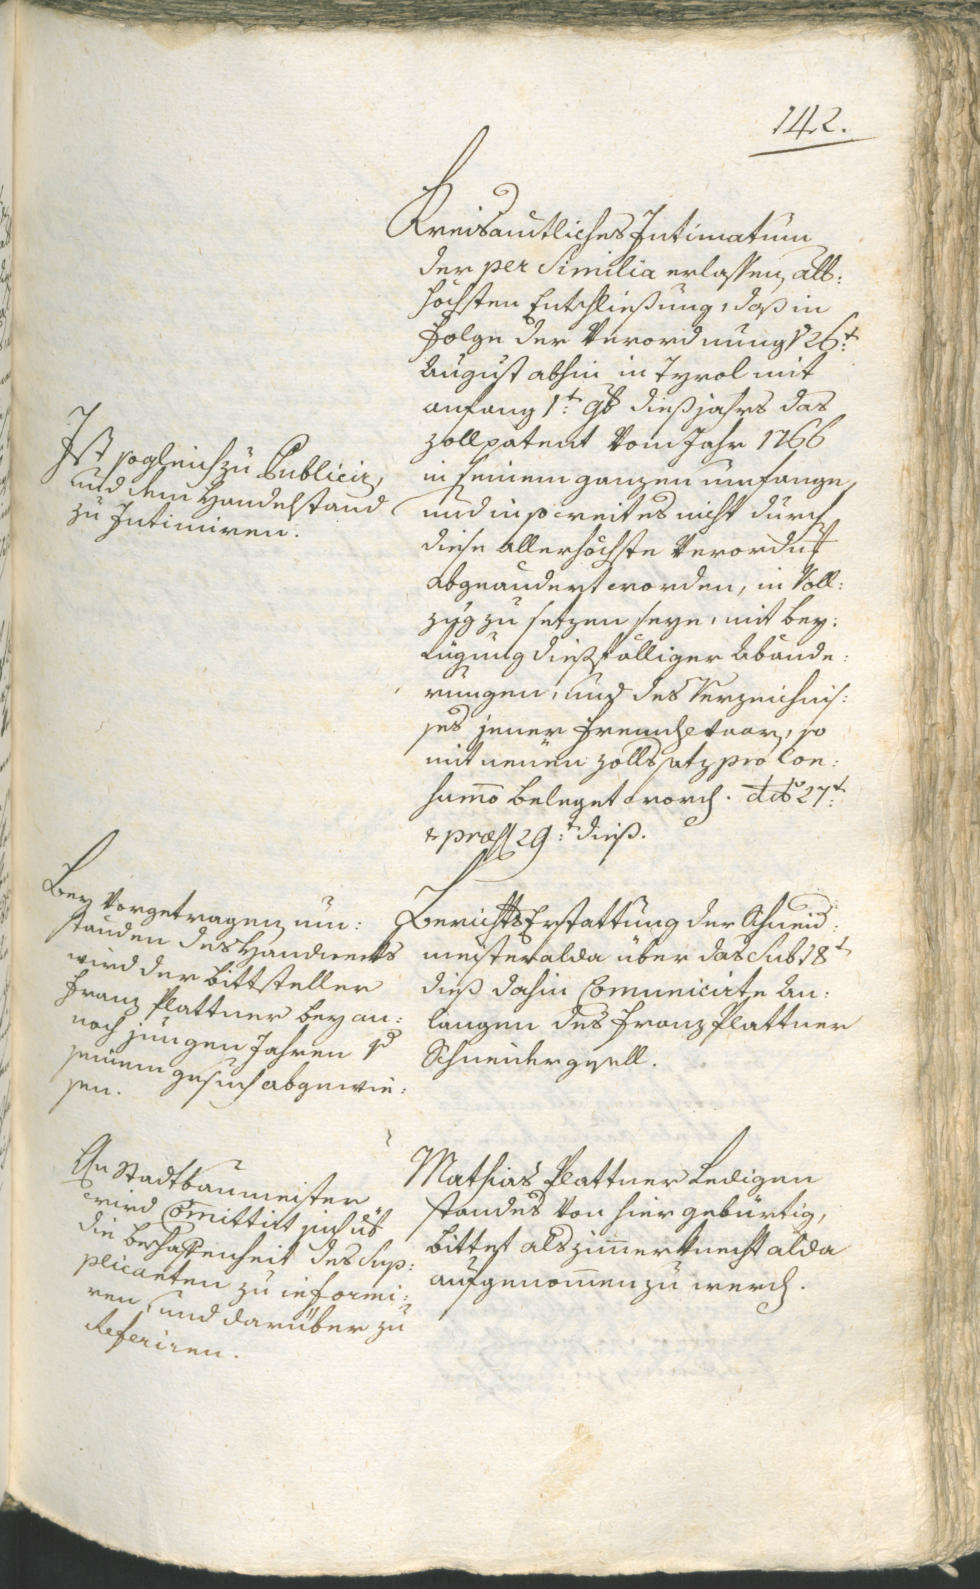 142.
Kreisamtliches Intimatum
der per Similia erlassen, all:
höchsten Entschließung, daß in
Folge der Verordnung 26t:
August abhin in Tyrol mit
anfang 1t: 9b dieß jahrs das
zollpatent Vom Jahr 1766
in seinem ganzen umfange,
und in so weit es nicht durch
diese allerhöchste Verordnu͠g
abgeändert worden, in Voll:
zug zu setzen seye, mit bey:
rügung dießfälliger Abände:
rungen, und des Verzeichnis:
ses jener Fremde waar, so
mit neuen zollsatz pro Con:
sumo beleget word. ddo 27t:
& præs 29:t dieß.
Ist sogleich zu Publicir,
und dem Handelstand
zu Intimiren.
Berichts Erstattung der Schneid:
meister alda über das Sub 18t
dieß dahin Comunicirte An:
langen des Franz Plattner
Schneidergesell.
Bey Vorgetragen, um:
ständen des Handwerks
wird der bittsteller
Franz Plattner bey an:
noch jungen Jahren
seinem gesuch abgewie:
sen.
Mathias Plattner Ledigen
standes Von hier gebürtig,
bittet als zimmerknecht alda
aufgenommen zu werd.
An Stadtbaumeister
wird Comittirt sich ub
die beschaffenheit des Sup:
plicanten zu informi:
ren, und darüber zu
Referiren.